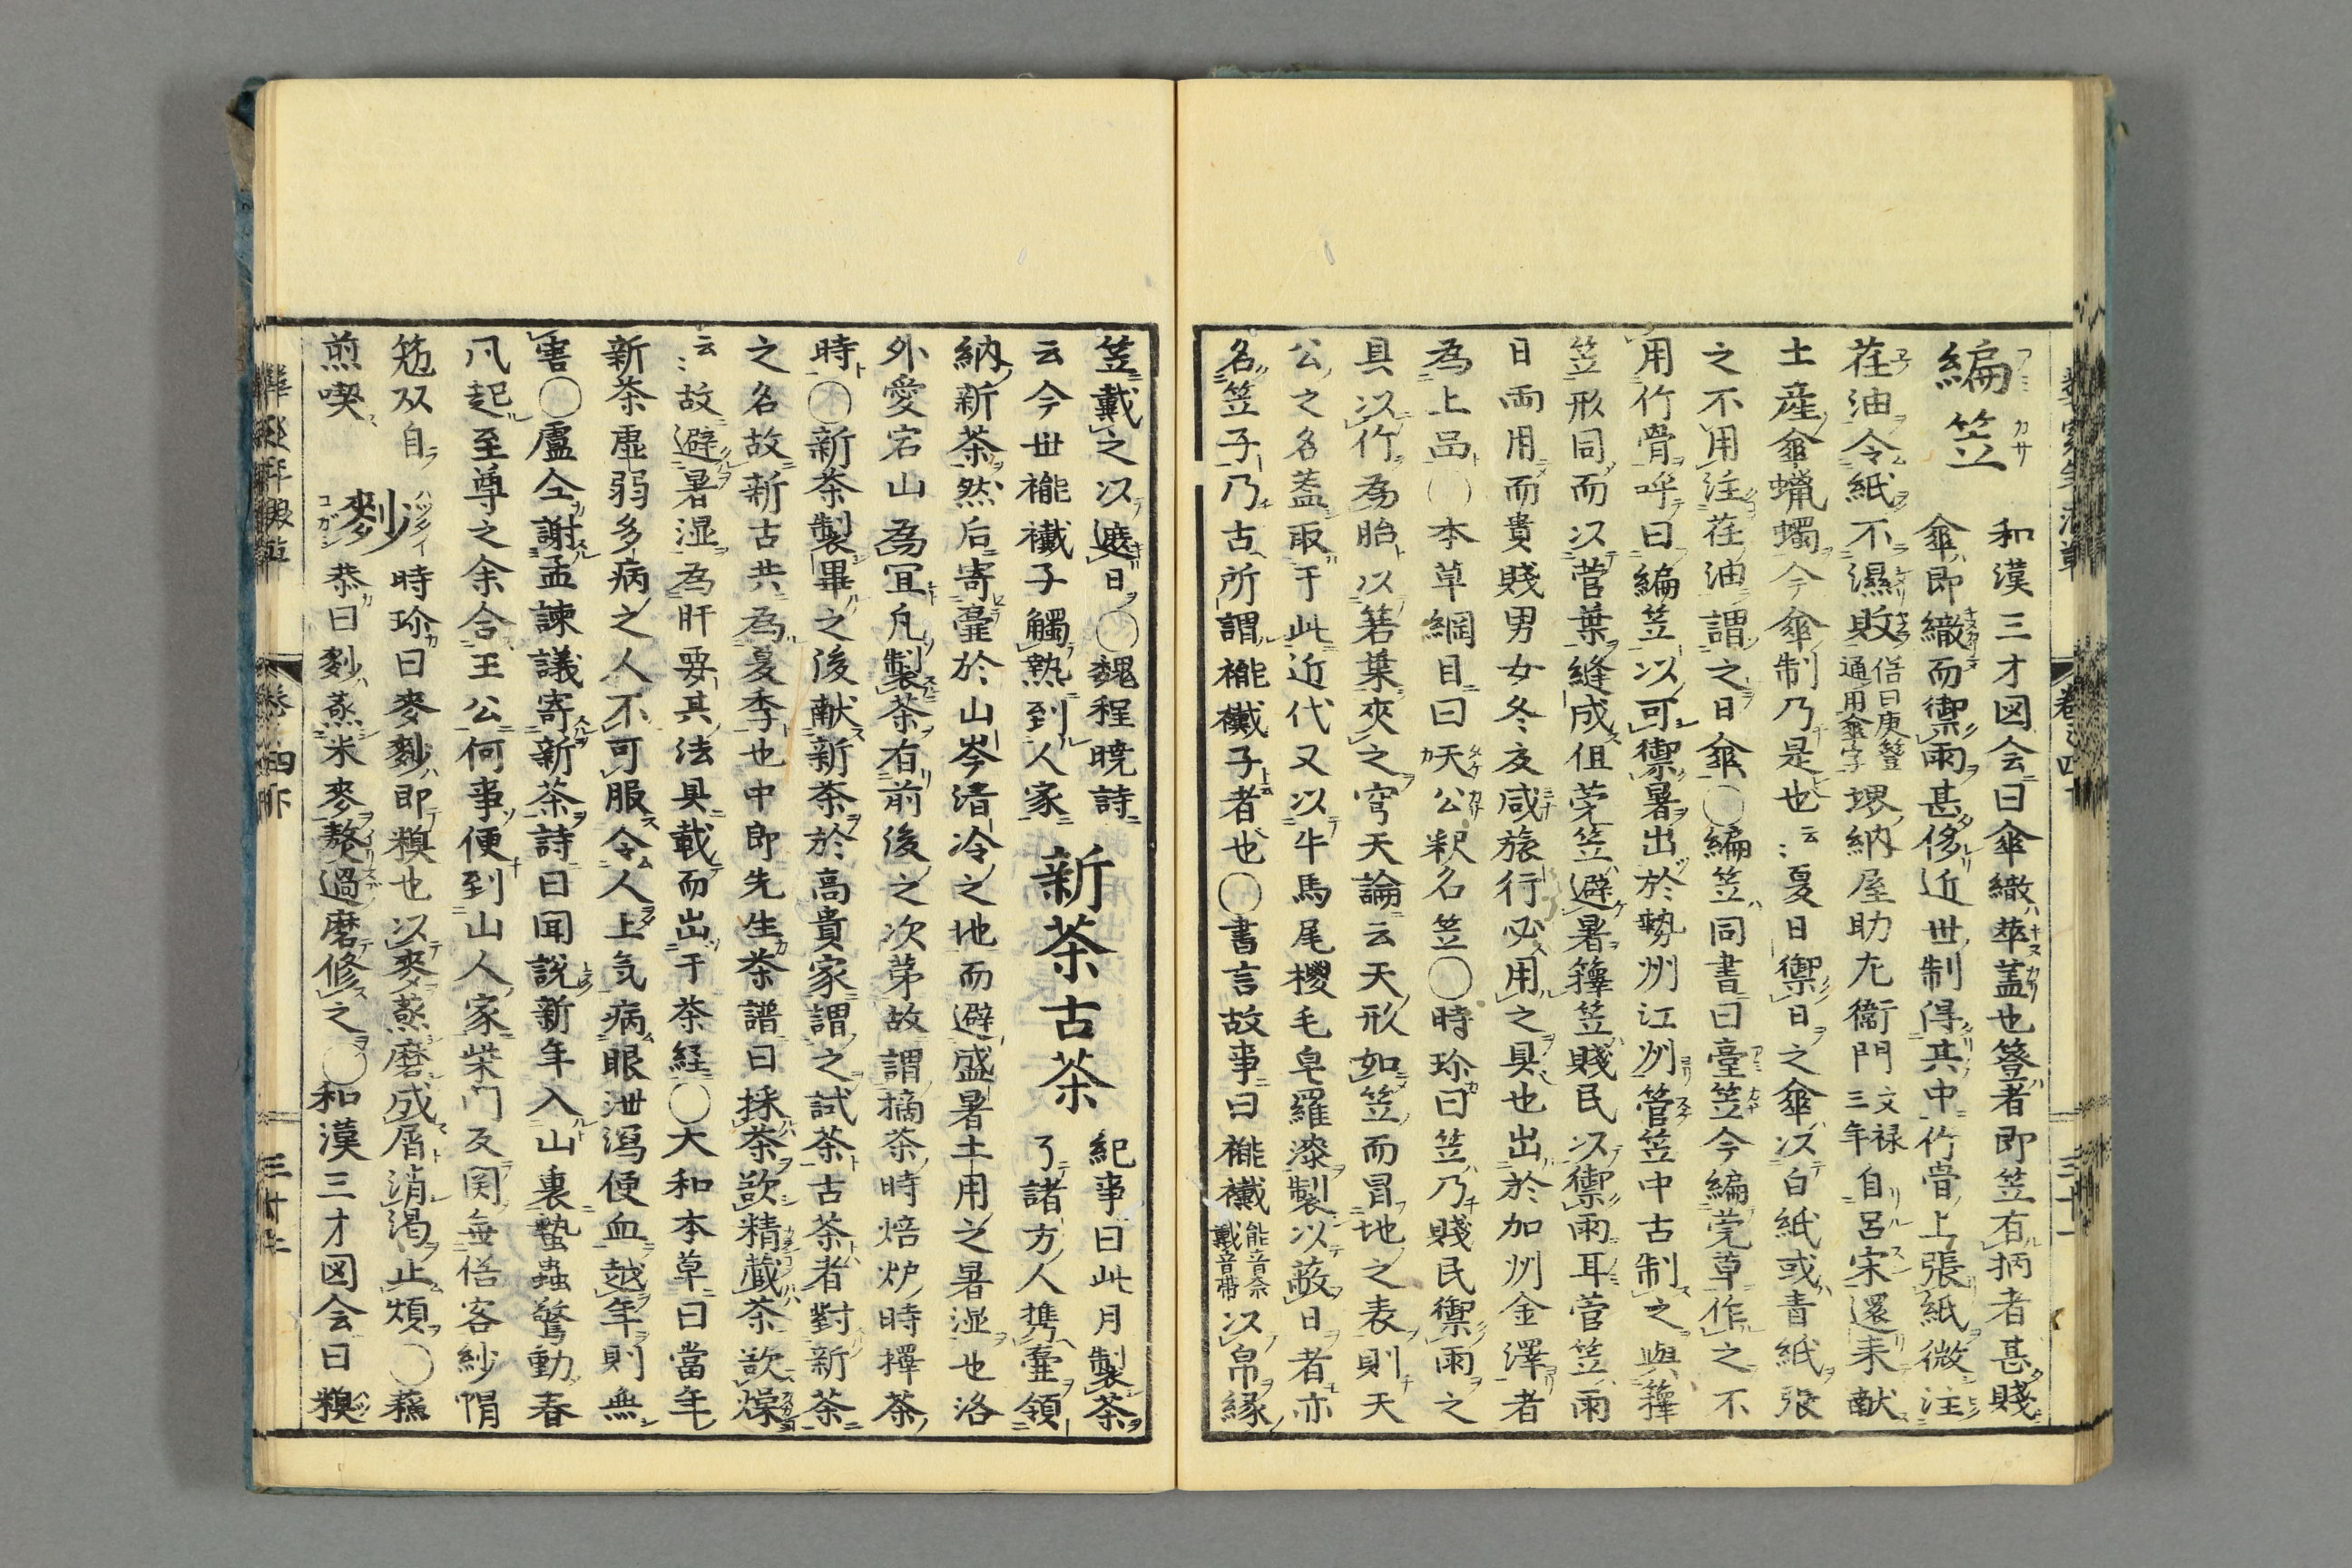 編笠 和漢三才図会曰傘繖莽蓋也簦者即笠有柄者甚賤
傘即繖而禦雨甚侈近世制得其中竹骨上張紙微注
荏油令紙不濕敗俗曰庚簦通用傘字堺納屋助尢衞門文禄三年自呂宋還来献
土産傘蠟蠋今傘制乃是也云云夏日禦日之傘以白紙或青紙張
之不用注荏油謂之日傘○編笠同書曰臺笠今編莞草作之不
用竹骨呼曰編笠以可禦暑出於勢州江州管笠中古制之與籜
笠形同而以菅葉縫成但莞笠避暑籜笠賤民以禦雨耳菅笠雨
日両用而貴賤男女冬夜咸旅行必用之具也出於加州金澤者
為上品○本草綱目曰天公釈名笠○時珍曰笠乃賤民禦雨之
具以竹為胎以箬葉夾之穹天論云天形如笠而冒地之表則天
公之名蓋取于此近代又以牛馬尾椶毛皁羅漆製以蔽日者亦
名笠子乃古所謂襶子者也○書言故事曰褦襶能音奈戴音帶以帛縁
笠戴之以遮日○魏程暁詩
云今世褦襶子觸熱到人家 新茶古茶 紀事曰此月製茶
了諸方人携壷領
納新茶然后寄壷於山岑清冷之地而避盛暑土用之暑湿也洛
外愛宕山為宜凡製茶有前後之次第故謂摘茶時焙炉時擇茶
時○新茶製畢之後献新茶於高貴家謂之試茶古茶者對新茶
之名故新古共為夏季也中即先生茶譜曰採茶欲精蔵茶欲燥
云云故避暑湿為肝要其法具載而出于茶経○大和本草曰當年
新茶虚弱多病之人不可服令人上気病眼泄瀉便血越年則無
害○盧仝謝孟諫議寄新茶詩曰聞説新年入山裏蟄蟲驚動春
凡起至尊之余合王公何事便到山人家柴门反関無俗客紗帽
笼双自
煎喫 麨 時珍曰麥麨即糗也以麥蒸磨成屑消渇止煩○蘓
恭曰麨蒸米麥熬過磨修之○和漢三才図会曰糗